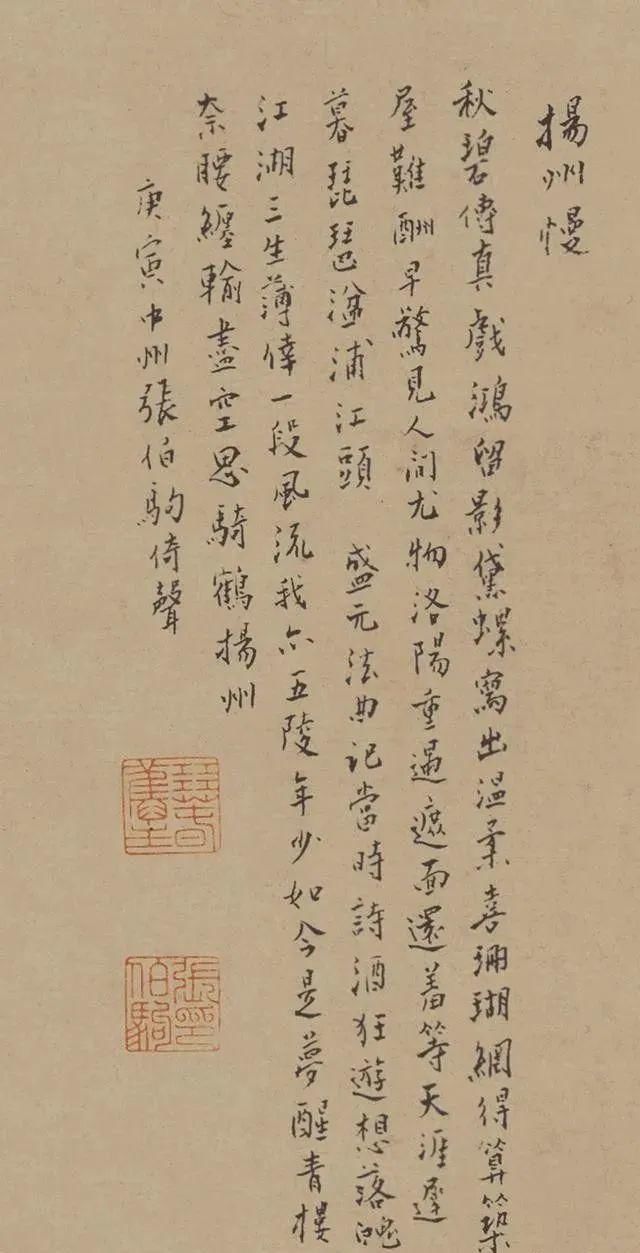 揚州慢
秋碧傳真戲鴻留影黛螺寫出溫柔喜珊瑚網得算築
屋難酬早驚見人間尤物洛陽重遇遮面還羞等天涯遲
暮琵琶湓浦江頭　盛元法曲記當時詩酒狂遊想落魄
江湖三生薄倖一段風流我亦五陵年少如今是夢醒青樓
奈腰纏輸盡空思騎鶴揚州
庚寅中州張伯駒倚聲
張印伯駒